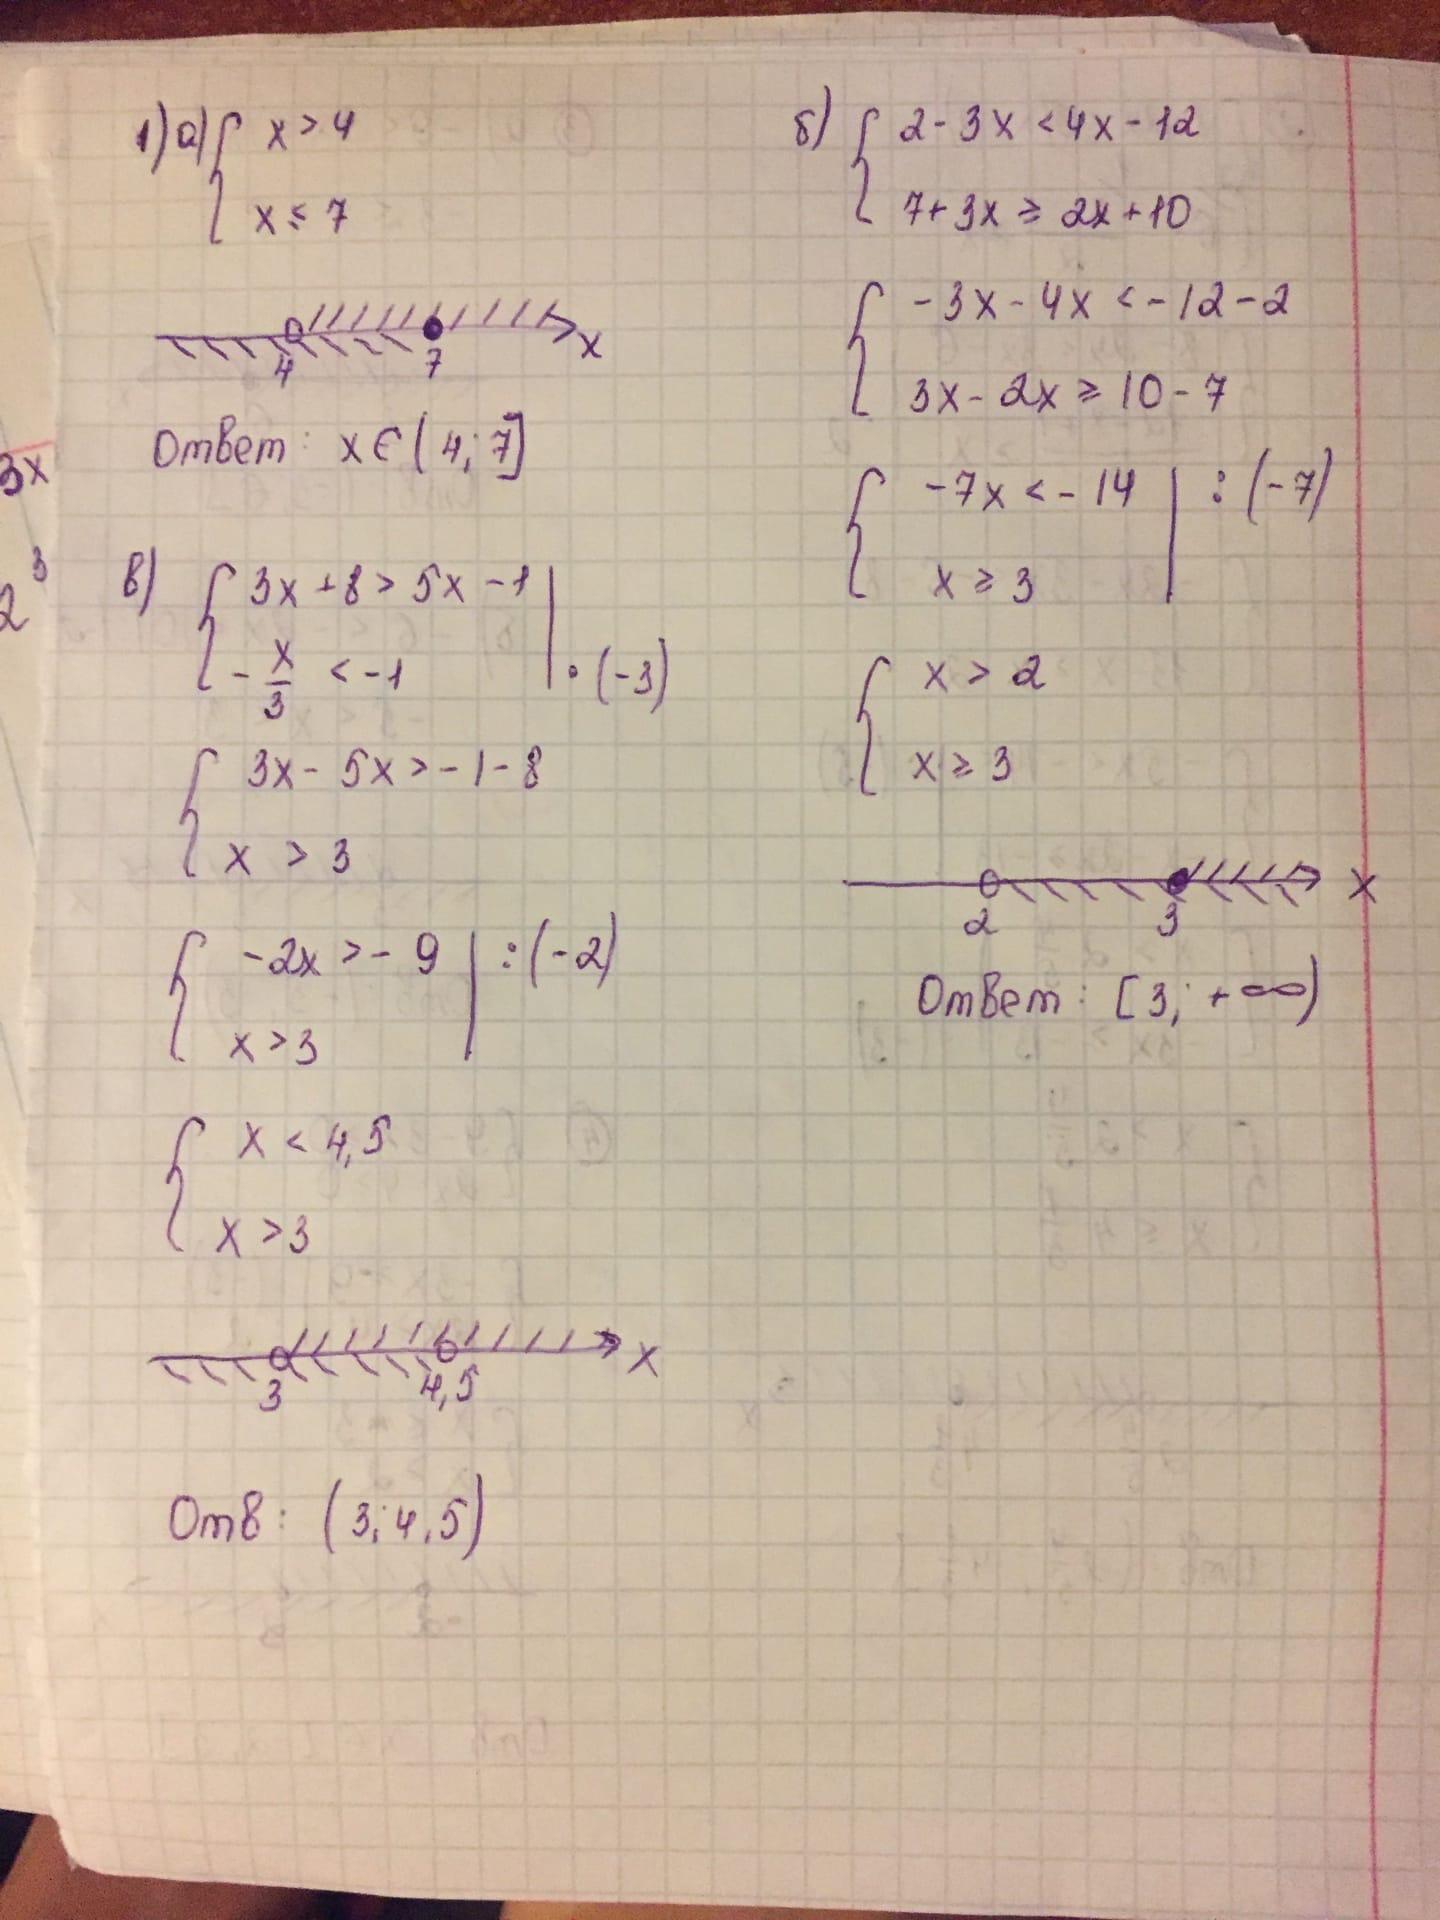 1) а) { x > 4
x ≤ 7
4 7 x
Ответ: x ∈ (4; 7]
в) { 3x + 8 > 5x - 1 |
- x/3 < -1 | · (-3)
{ 3x - 5x > -1 - 8
x > 3
{ -2x > -9 | : (-2)
x > 3
{ x < 4,5
x > 3
3 4,5 x
Отв: (3; 4,5)
б) { 2 - 3x < 4x - 12
7 + 3x ≥ 2x + 10
{ -3x - 4x < -12 - 2
3x - 2x ≥ 10 - 7
{ -7x < -14 | : (-7)
x ≥ 3
{ x > 2
x ≥ 3
2 3 x
Ответ: [3; +∞)
3x
2³